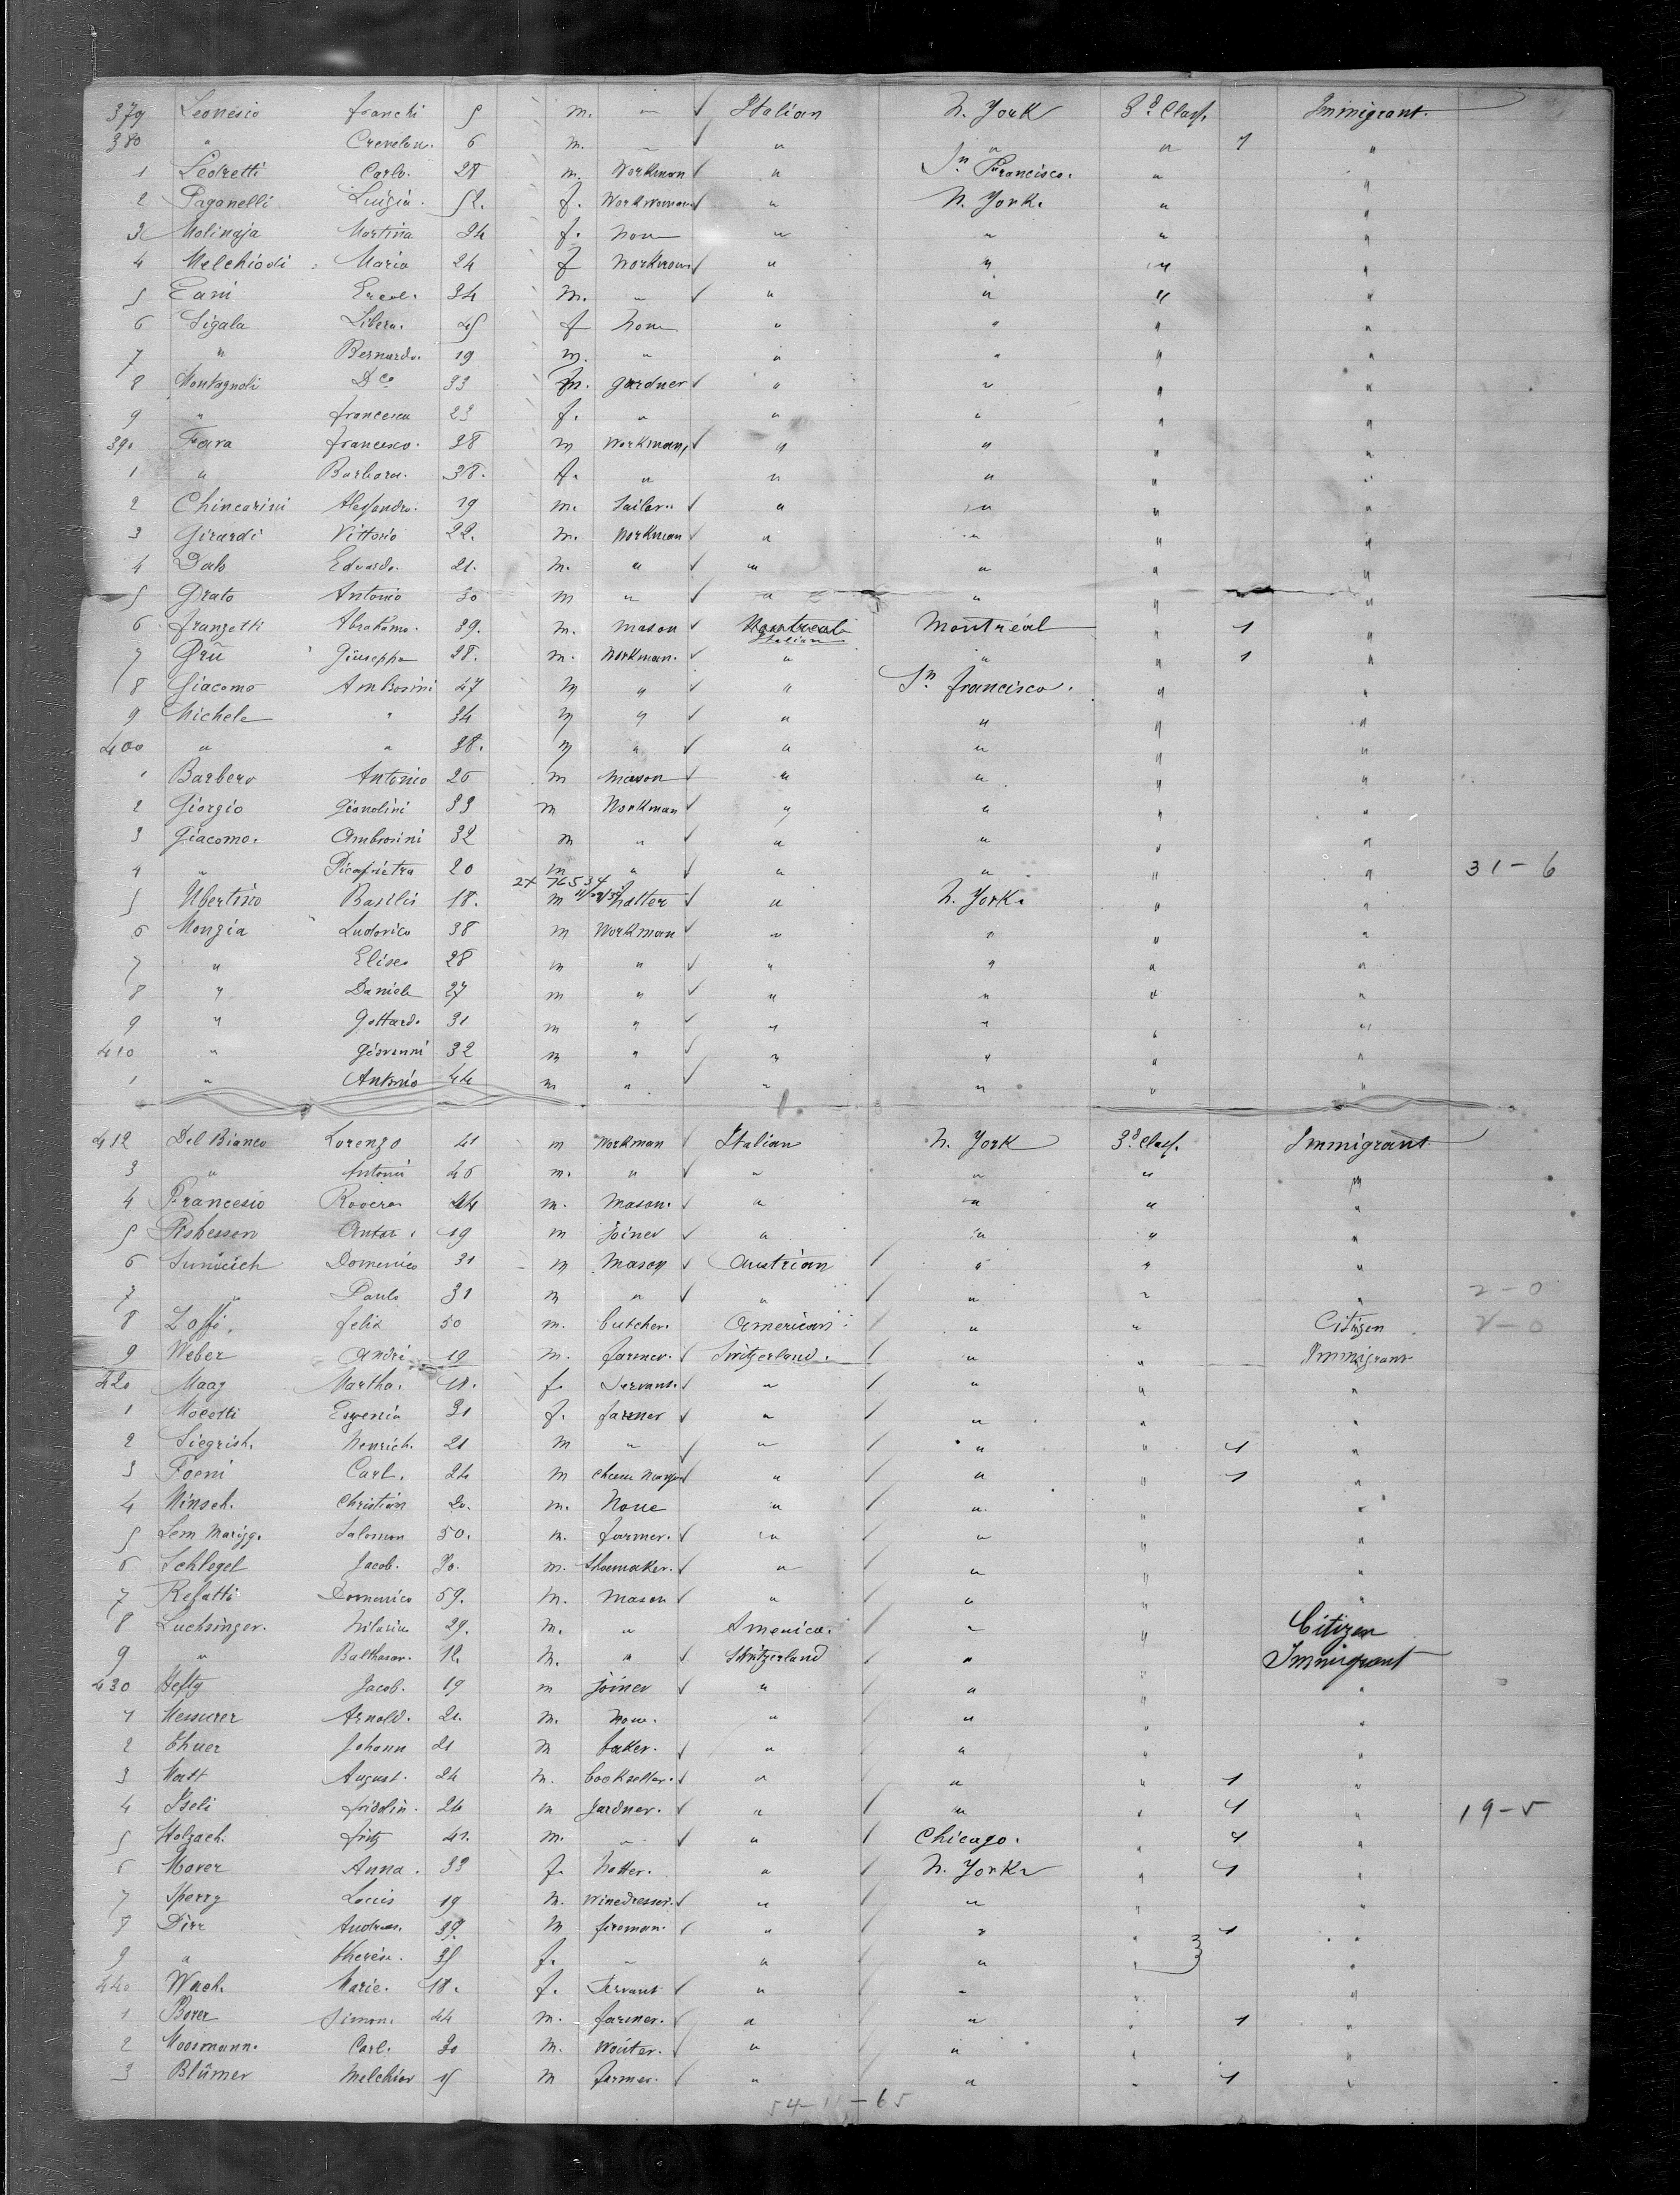 379 Leonesio franchi 5 m. " Italian N. York 3d Class. Immigrant
380 " 6 m. " " " " 1 "
1 Pedretti Carlo. 28 m. Workman " Sn Francisco. " "
2 Paganelli Luigia. 52. f. Workwoman " N. York. " "
3 Molinaja Martina 24 f. None " " " "
4 Melchiodi Maria 24 f " " " "
5 Zani Ercol. 34 m. " " " " "
6 Sigala Libera. 45 f None " " " "
7 " Bernardo. 19 m. " " " " "
8 Montagnoli Dco 33 m. gardner " " " "
9 " francesca 23 f. " " " " "
390 Fava francesco. 28 m Workman, " " " "
1 " Barbara. 38. f. " " " " "
2 Chincarini Alessandro. 19 m. " " " "
3 Girardi Vittorio 22. m. Workman " " " "
4 Edoardo. 21. m. " " " " "
5 Grato Antonio 30 m " " " " "
6 franzetti Abrahamo. 39. m. Mason Montreal Italian Montréal " 1 "
7 Giuseppe 28. m. Workman. " " " 1 "
8 Giacomo Ambrosini 47 m " " Sn francisco. " "
9 Michele " 34 m " " " " "
400 " " 28. m " " " " "
1 Barbero Antonio 26 m Mason " " " "
2 Giorgio Gianolini 33 m Workman " " " "
3 Giacomo. Ambrosini 32 m " " " " "
4 " Picapietra 20 m " " " " " 31-6
5 Ubertino Basilio 18. m hatter " N. York. " "
6 Monzia Ludovico 38 m Workman " " " "
7 " Eliseo 28 m " " " " "
8 " Daniele 27 m " " " " "
9 " Gottardo 31 m " " " " "
410 " Giovanni 32 m " " " " "
1 " Antonio 44 m " " " " "
412 Del Bianco Lorenzo 41 m Workman Italian N. York 3d Class. Immigrant
3 " Antonio 46 m. " " " " "
4 Francesio Rovero 44 m. Mason. " " " "
5 19 m Joiner " " " "
6 Sunicich Domenico 31 m Mason Austrian " " "
7 " Paulo 31 m " " " " " 2-0
8 felix 50 m. butcher. American " " Citizen
9 Weber André 19 m. farmer. Switzerland. " " Immigrant
420 Maag Martha. 18. f. Servant. " " " "
1 Mocetti Eugenia 31 f. farmer " " " "
2 Siegrist. Henrich. 21 m " " " " 1 "
3 Foeni Carl. 24 m " " " 1 "
4 Christian 20. m. None " " " "
5 Salomon 50. m. farmer. " " " "
6 Schlegel Jacob. 30. m. Shoemaker. " " " "
7 Refatti Domenico 59. m. Mason " " " "
8 Luchsinger. Hilarius 29. m. " America. " " Citizen
9 " Balthasar. 12. m. " Switzerland " " Immigrant
430 Hefty Jacob. 19 m joiner " " " "
1 Arnold. 21. m. None. " " " "
2 Johann 21 m baker. " " " "
3 August. 24 m. bookseller. " " " 1 "
4 Iseli fridolin. 24 m gardner. " " " 1 " 19-5
5 Holzach. fritz 41. m. " " Chicago. " 1 "
6 Anna. 33 f. hatter. " N. York " 1 "
7 Sperry Louis 19 m. Winedresser. " " " "
8 Dirr Andreas. 39. m fireman. " " " 1 "
9 " theresa. 35 f. " " " " "
440 Marie. 18. f. Servant " " " "
1 Borer Simon. 44 m. farmer. " " " 1 "
2 Moosmann. Carl. 30 m. Waiter. " " " "
3 Blümer Melchior m farmer. " " " 1 "
54-11-65